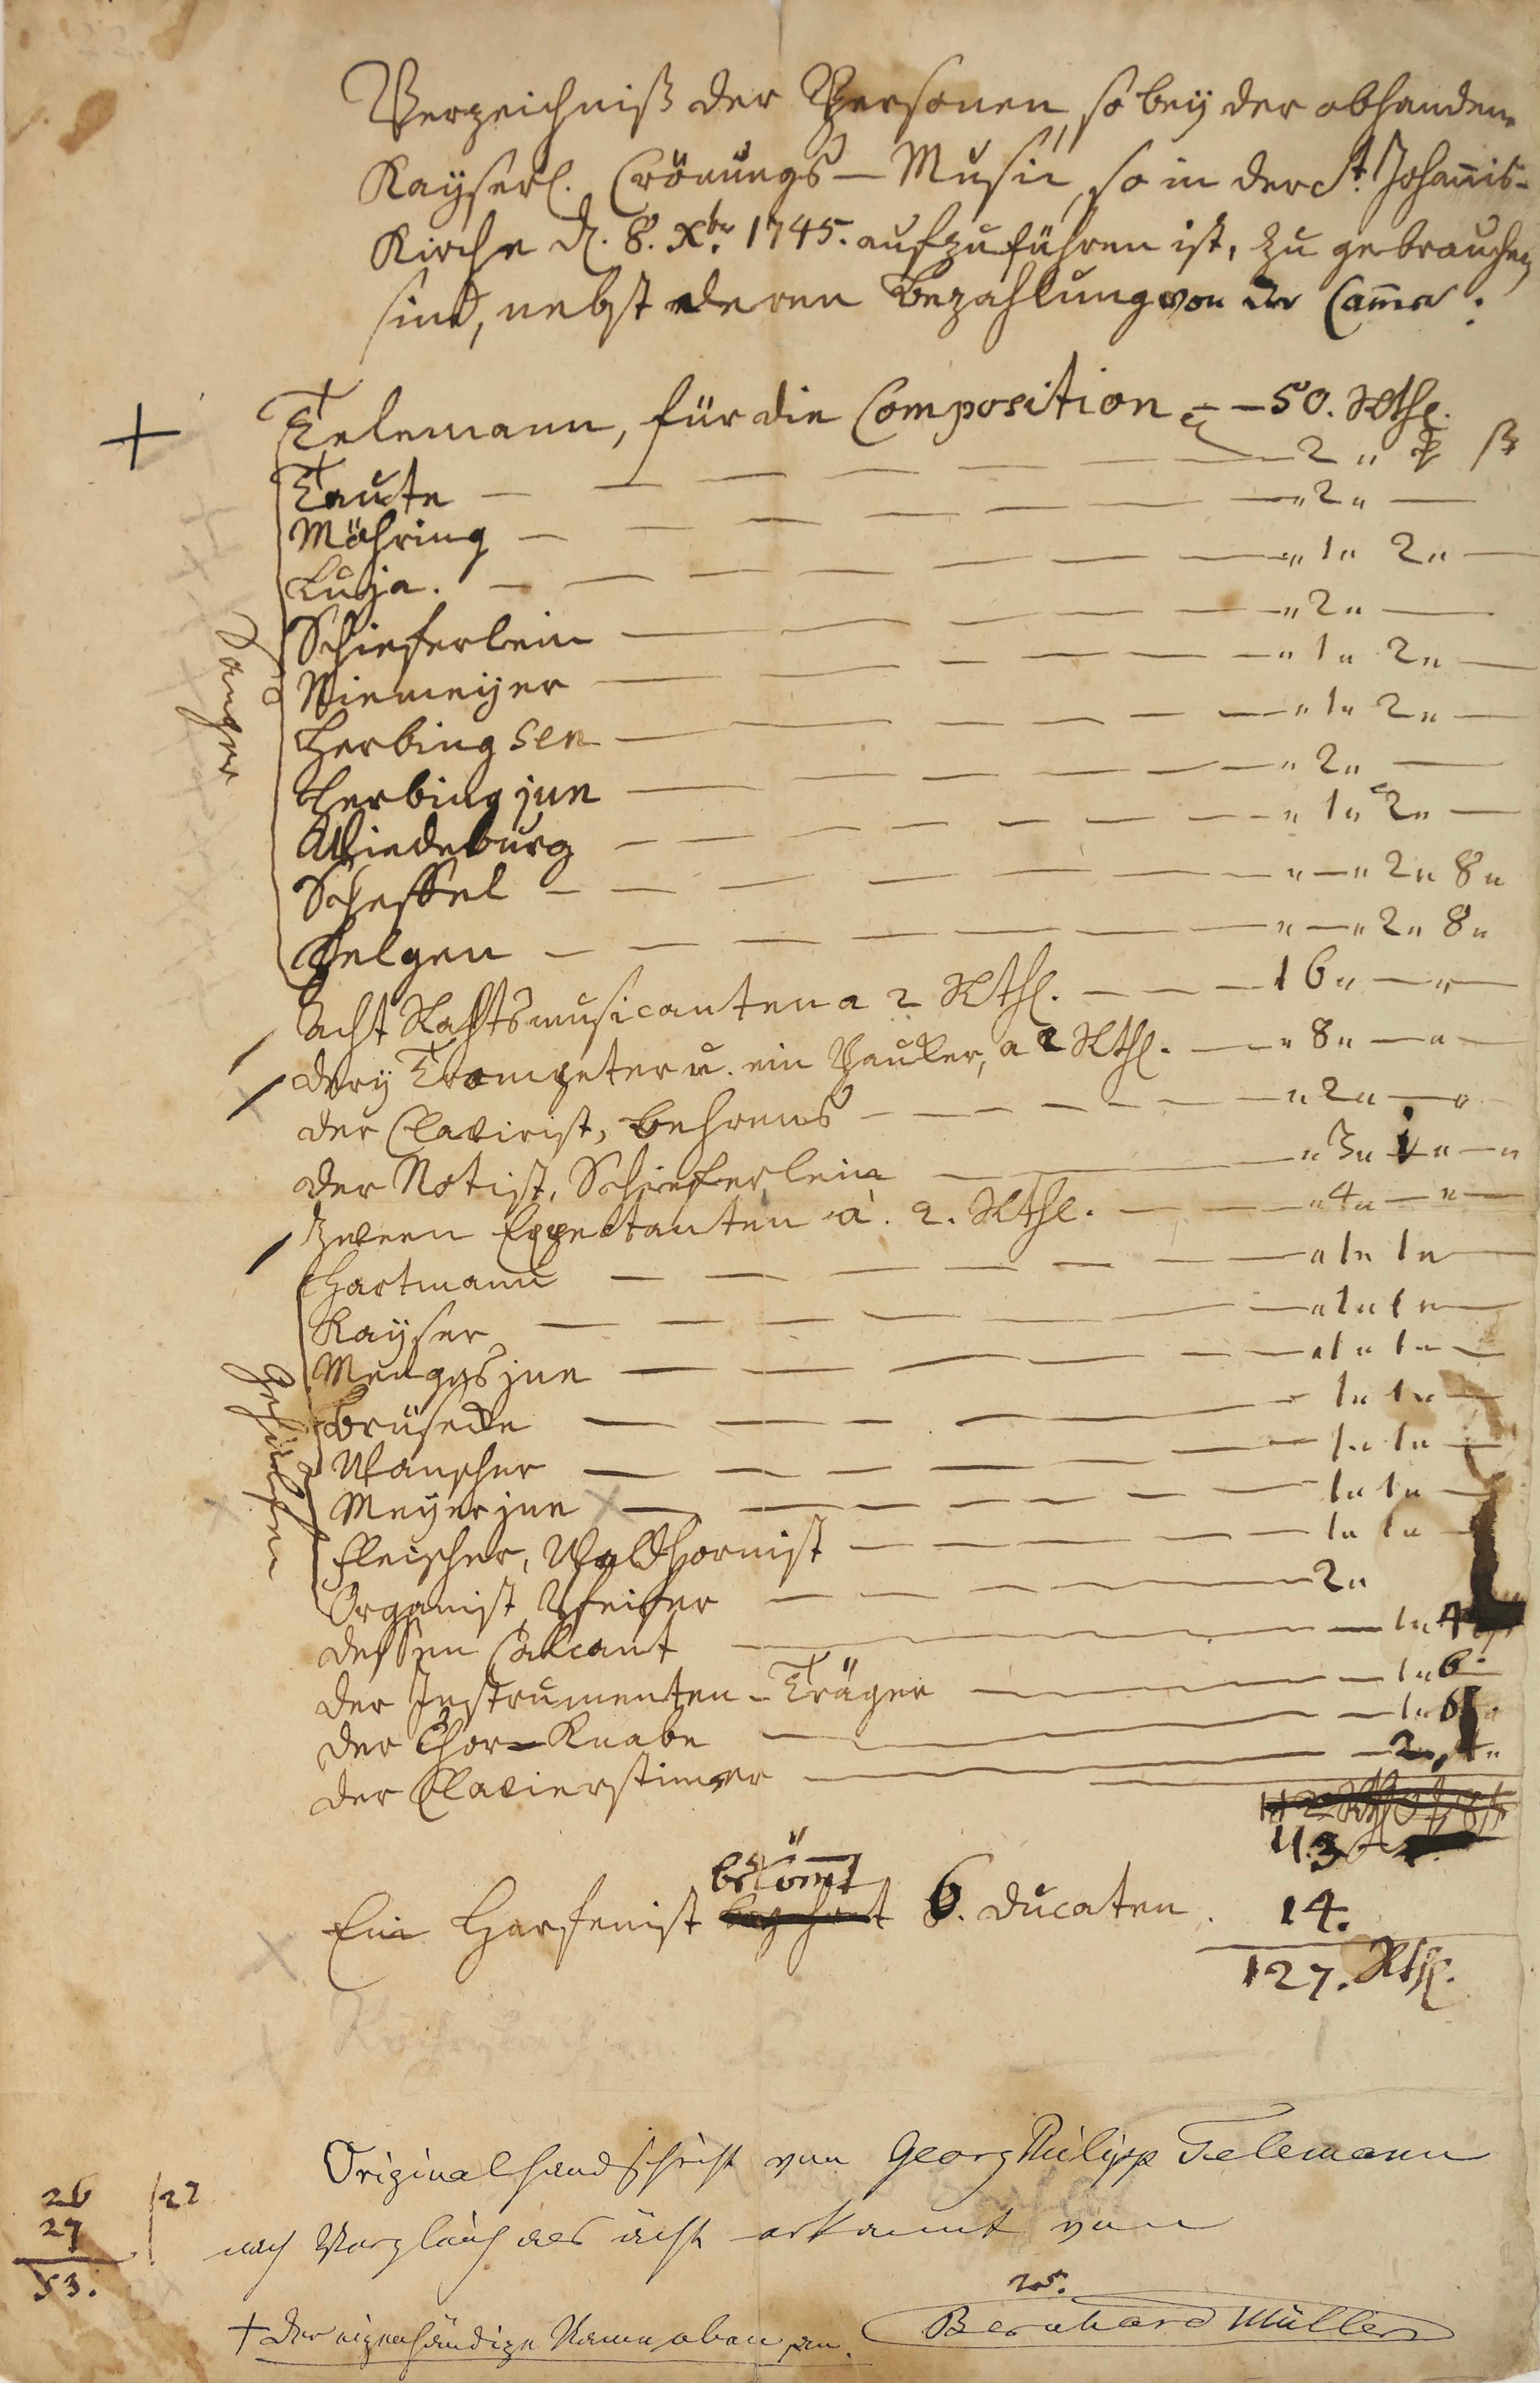 Verzeichniß der Personen, so bey der abhanden
Kayserl. Crönungs-Music, so in der St. Johannis-
Kirche d. 8. Xbr. 1745. aufzuführen ist, zu gebrauchen
sind, nebst deren Bezahlung von der Cam̅er:
+ Telemann, für die Composition — — 50. Rthl.
Taute — — — — — — 2 „ ₰ ß
Möhring — — — — — — „ 2 „ —
Luja. — — — — — — „ 1 „ 2 „ —
Schieferlein — — — — — „ 2 „ —
Niemeyer — — — — — „ 1 „ 2 „ —
Sänger
Herbing sen — — — — — „ 1 „ 2 „ —
Herbing jun — — — — — „ 2 „ —
Wiedeburg — — — — — „ 1 „ 2 „ —
Scheffel — — — — — „ — „ 2 „ 8 „
Helgen — — — — — „ — „ 2 „ 8 „
Acht Rahtsmusicanten a 2 Rthl. — — — 16 „ — „ —
drey Trompeter u. ein Pauker, a 2 Rthl. — „ 8 „ — „ —
der Clavirist, Behrens — — — — — „ 2 „ — „
der Notist, Schieferlein — — — „ 3 „ — „ — „
Zween Expectanten à. 2. Rthl. — — — „ 4 „ — „ —
Hartmann — — — — — „ 1 „ 1 „ —
Kayser — — — — — „ 1 „ 1 „ —
Menges jun — — — — — „ 1 „ 1 „ —
Brüsecke — — — — — 1 „ 1 „ —
Gehülfen
Wanscher — — — — — 1 „ 1 „ —
Meyer jun — — — — — 1 „ 1 „ —
Fleischer, Waldhornist — — — — — 1 „ 1 „ —
Organist Pfeifer — — — — 2 „
dessen Calcant — — — — 1 „ 4
der Instrumenten-Träger — — — — 1 „ 6
der Chor-Knabe — — — — 1 „ 6
der Clavierstimmer — — — — 2 „
113
bekömt
Ein Harfenist 6. Ducaten. 14.
127. Rthl.
Originalhandschrift von Georg Philipp Telemann
nach Vergleich als ächt erkannt von
26 | 22
27
53.
25.
Bernhard Müller
+ Der eigenhändige Name oben an.